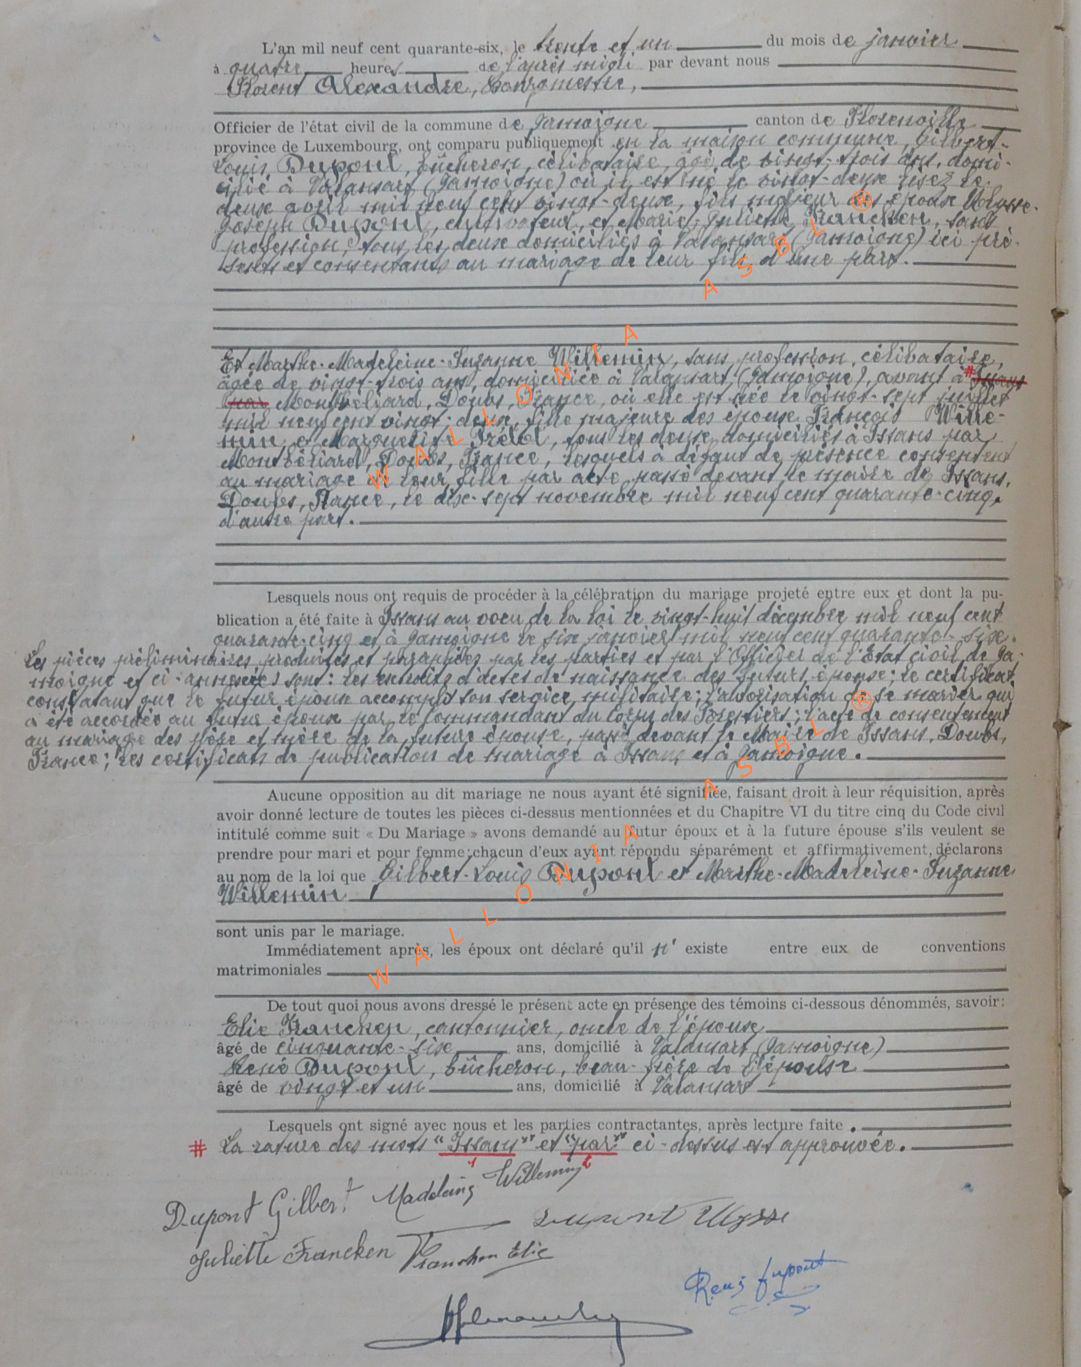 L'an mil neuf cent quarante-six, le trente et un du mois de janvier
à quatre heures de l'après midi par devant nous
Florent Alexandre, bourgmestre,
Officier de l'état civil de la commune de Jamoigne canton de Florenville
province de Luxembourg, ont comparu publiquement en la maison commune, Gilbert-
Louis Dupont, bûcheron, célibataire, âgé de vingt-trois ans, domi-
cilié à Valansart (Jamoigne) où il est né le vingt-deux
deux avril mil neuf cent vingt-deux, fils majeur des époux Ulysse-
Joseph Dupont, cultivateur, et Marie-Juliette Francken, sans
profession, tous les deux domiciliés à Valansart (Jamoigne) ici pré-
sents et consentants au mariage de leur fils, d'une part.
Et Marthe-Madeleine-Suzanne Willemin, sans profession, célibataire,
âgée de vingt-trois ans, domiciliée à Valansart (Jamoigne), avant à # Issans
par Montbéliard, Doubs, France, où elle est née le vingt-sept juillet
mil neuf cent vingt-deux, fille majeure des époux François Wille-
min et Marguerite Prétôt, tous les deux domiciliés à Issans par
Montbéliard, Doubs, France, lesquels à défaut de présence consentent
au mariage de leur fille par acte passé devant le maire de Issans,
Doubs, France, le dix-sept novembre mil neuf cent quarante-cinq,
d'autre part.
Lesquels nous ont requis de procéder à la célébration du mariage projeté entre eux et dont la pu-
blication a été faite à Issans au voeu de la loi le vingt-huit décembre mil neuf cent
quarante-cinq et à Jamoigne le six janvier mil neuf cent quarante-six.
Les pièces préliminaires produites et paraphées par les parties et par l'Officier de l'Etat civil de Ja-
moigne et ci-annexées sont: les extraits d'actes de naissance des futurs époux; le certificat
constatant que le futur époux accomplit son service militaire; l'autorisation de se marier qui
a été accordée au futur époux par le Commandant du Corps des Forestiers; l'acte de consentement
au mariage des père et mère de la future épouse, passé devant le Maire de Issans, Doubs,
France; les certificats de publication de mariage à Issans et à Jamoigne.
Aucune opposition au dit mariage ne nous ayant été signifiée, faisant droit à leur réquisition, après
avoir donné lecture de toutes les pièces ci-dessus mentionnées et du Chapitre VI du titre cinq du Code civil
intitulé comme suit « Du Mariage » avons demandé au futur époux et à la future épouse s'ils veulent se
prendre pour mari et pour femme; chacun d'eux ayant répondu séparément et affirmativement, déclarons
au nom de la loi que Gilbert-Louis Dupont et Marthe-Madeleine-Suzanne
Willemin
sont unis par le mariage.
Immédiatement après, les époux ont déclaré qu'il n' existe entre eux de conventions
matrimoniales
De tout quoi nous avons dressé le présent acte en présence des témoins ci-dessous dénommés, savoir:
Elie Francken, cantonnier, oncle de l'épouse
âgé de cinquante-six ans, domicilié à Valansart (Jamoigne)
René Dupont, bûcheron, beau-frère de l'épouse
âgé de vingt et un ans, domicilié à Valansart
Lesquels ont signé avec nous et les parties contractantes, après lecture faite.
# La rature des mots "Issans" et "par" ci-dessus est approuvée.
Dupont Gilbert Madeleine Willemin Dupont Ulysse
Juliette Francken Francken Elie
René Dupont
WALLONIA ASBL ®
WALLONIA ASBL ®